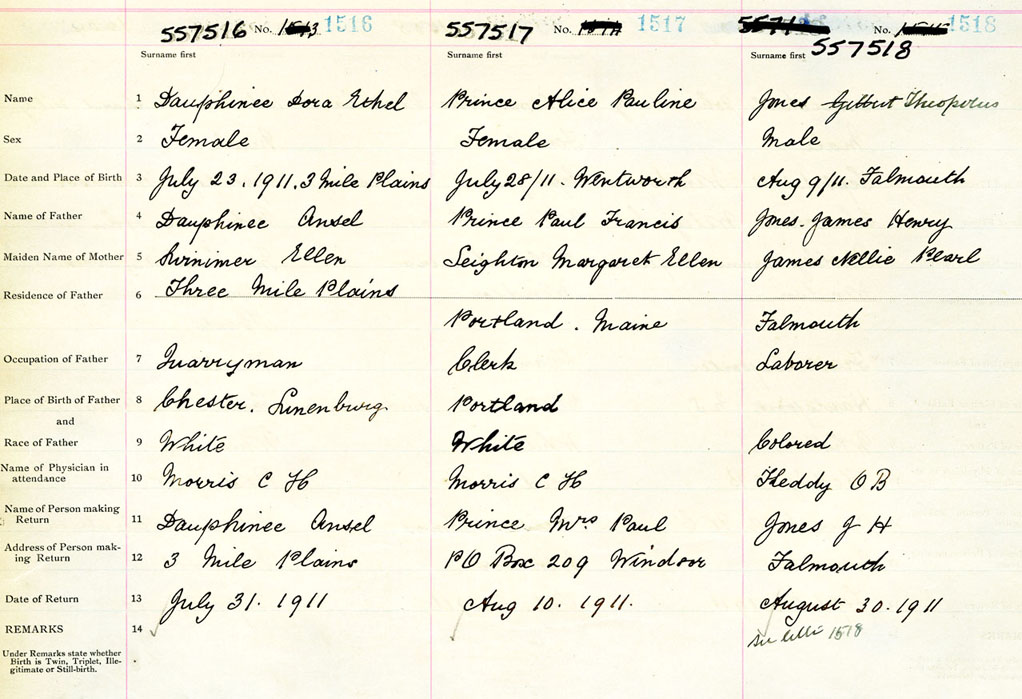 557516 No. 1516 557517 No. 1517 No. 1518
Surname first Surname first Surname first 557518
Name 1 Dauphinee Dora Ethel Prince Alice Pauline Jones Gilbert Theoporus
Sex 2 Female Female Male
Date and Place of Birth 3 July 23, 1911, 3 Mile Plains July 28/11. Wentworth Aug 9/11. Falmouth
Name of Father 4 Dauphinee Ansel Prince Paul Francis Jones. James Henry
Maiden Name of Mother 5 Swinimer Ellen Leighton Margaret Ellen James Nellie Pearl
Residence of Father 6 Three Mile Plains
Portland. Maine Falmouth
Occupation of Father 7 Quarryman Clerk Laborer
Place of Birth of Father 8 Chester. Lunenburg Portland
and
Race of Father 9 White White Colored
Name of Physician in
attendance 10 Morris C H Morris C H Keddy O B
Name of Person making
Return 11 Dauphinee Ansel Prince Mrs Paul Jones J H
Address of Person mak-
ing Return 12 3 Mile Plains PO Box 209 Windsor Falmouth
Date of Return 13 July 31. 1911 Aug 10. 1911. August 30. 1911
REMARKS 14 1518
Under Remarks state whether
Birth is Twin, Triplet, Ille-
gitimate or Still-birth.